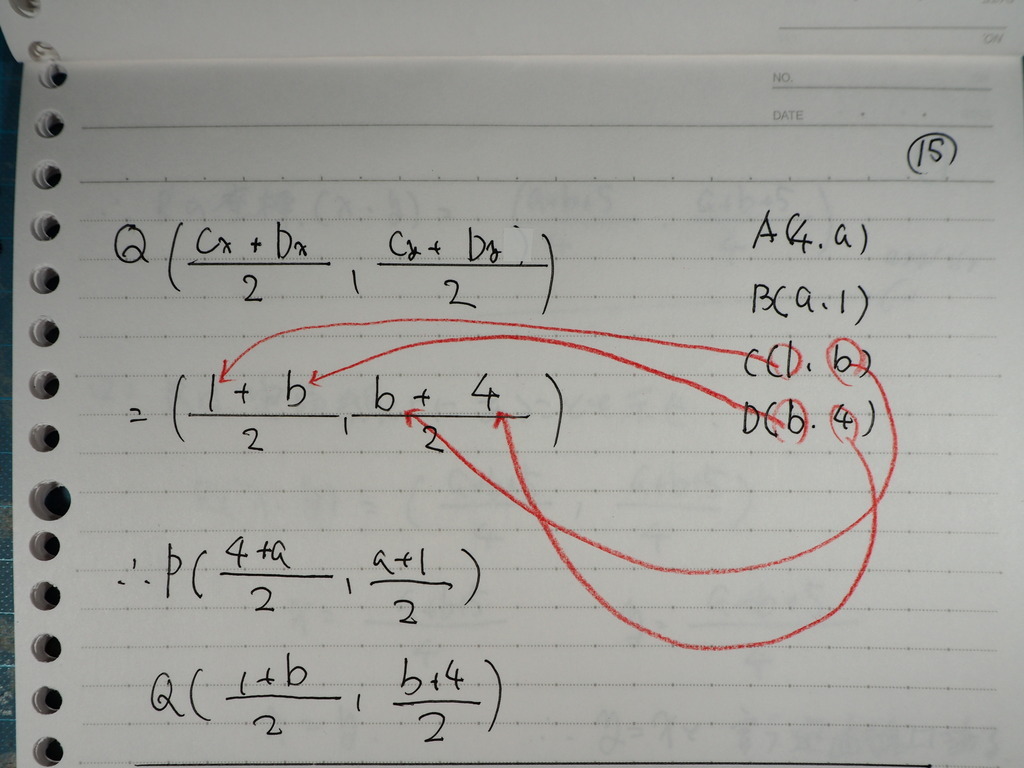 NO.
DATE
⑮
Q ( (Cx + Dx)/2 , (Cy + Dy)/2 )
A(4.a)
B(a.1)
C(1.b)
D(b.4)
= ( (1 + b)/2 , (b + 4)/2 )
∴ P( (4+a)/2 , (a+1)/2 )
Q( (1+b)/2 , (b+4)/2 )